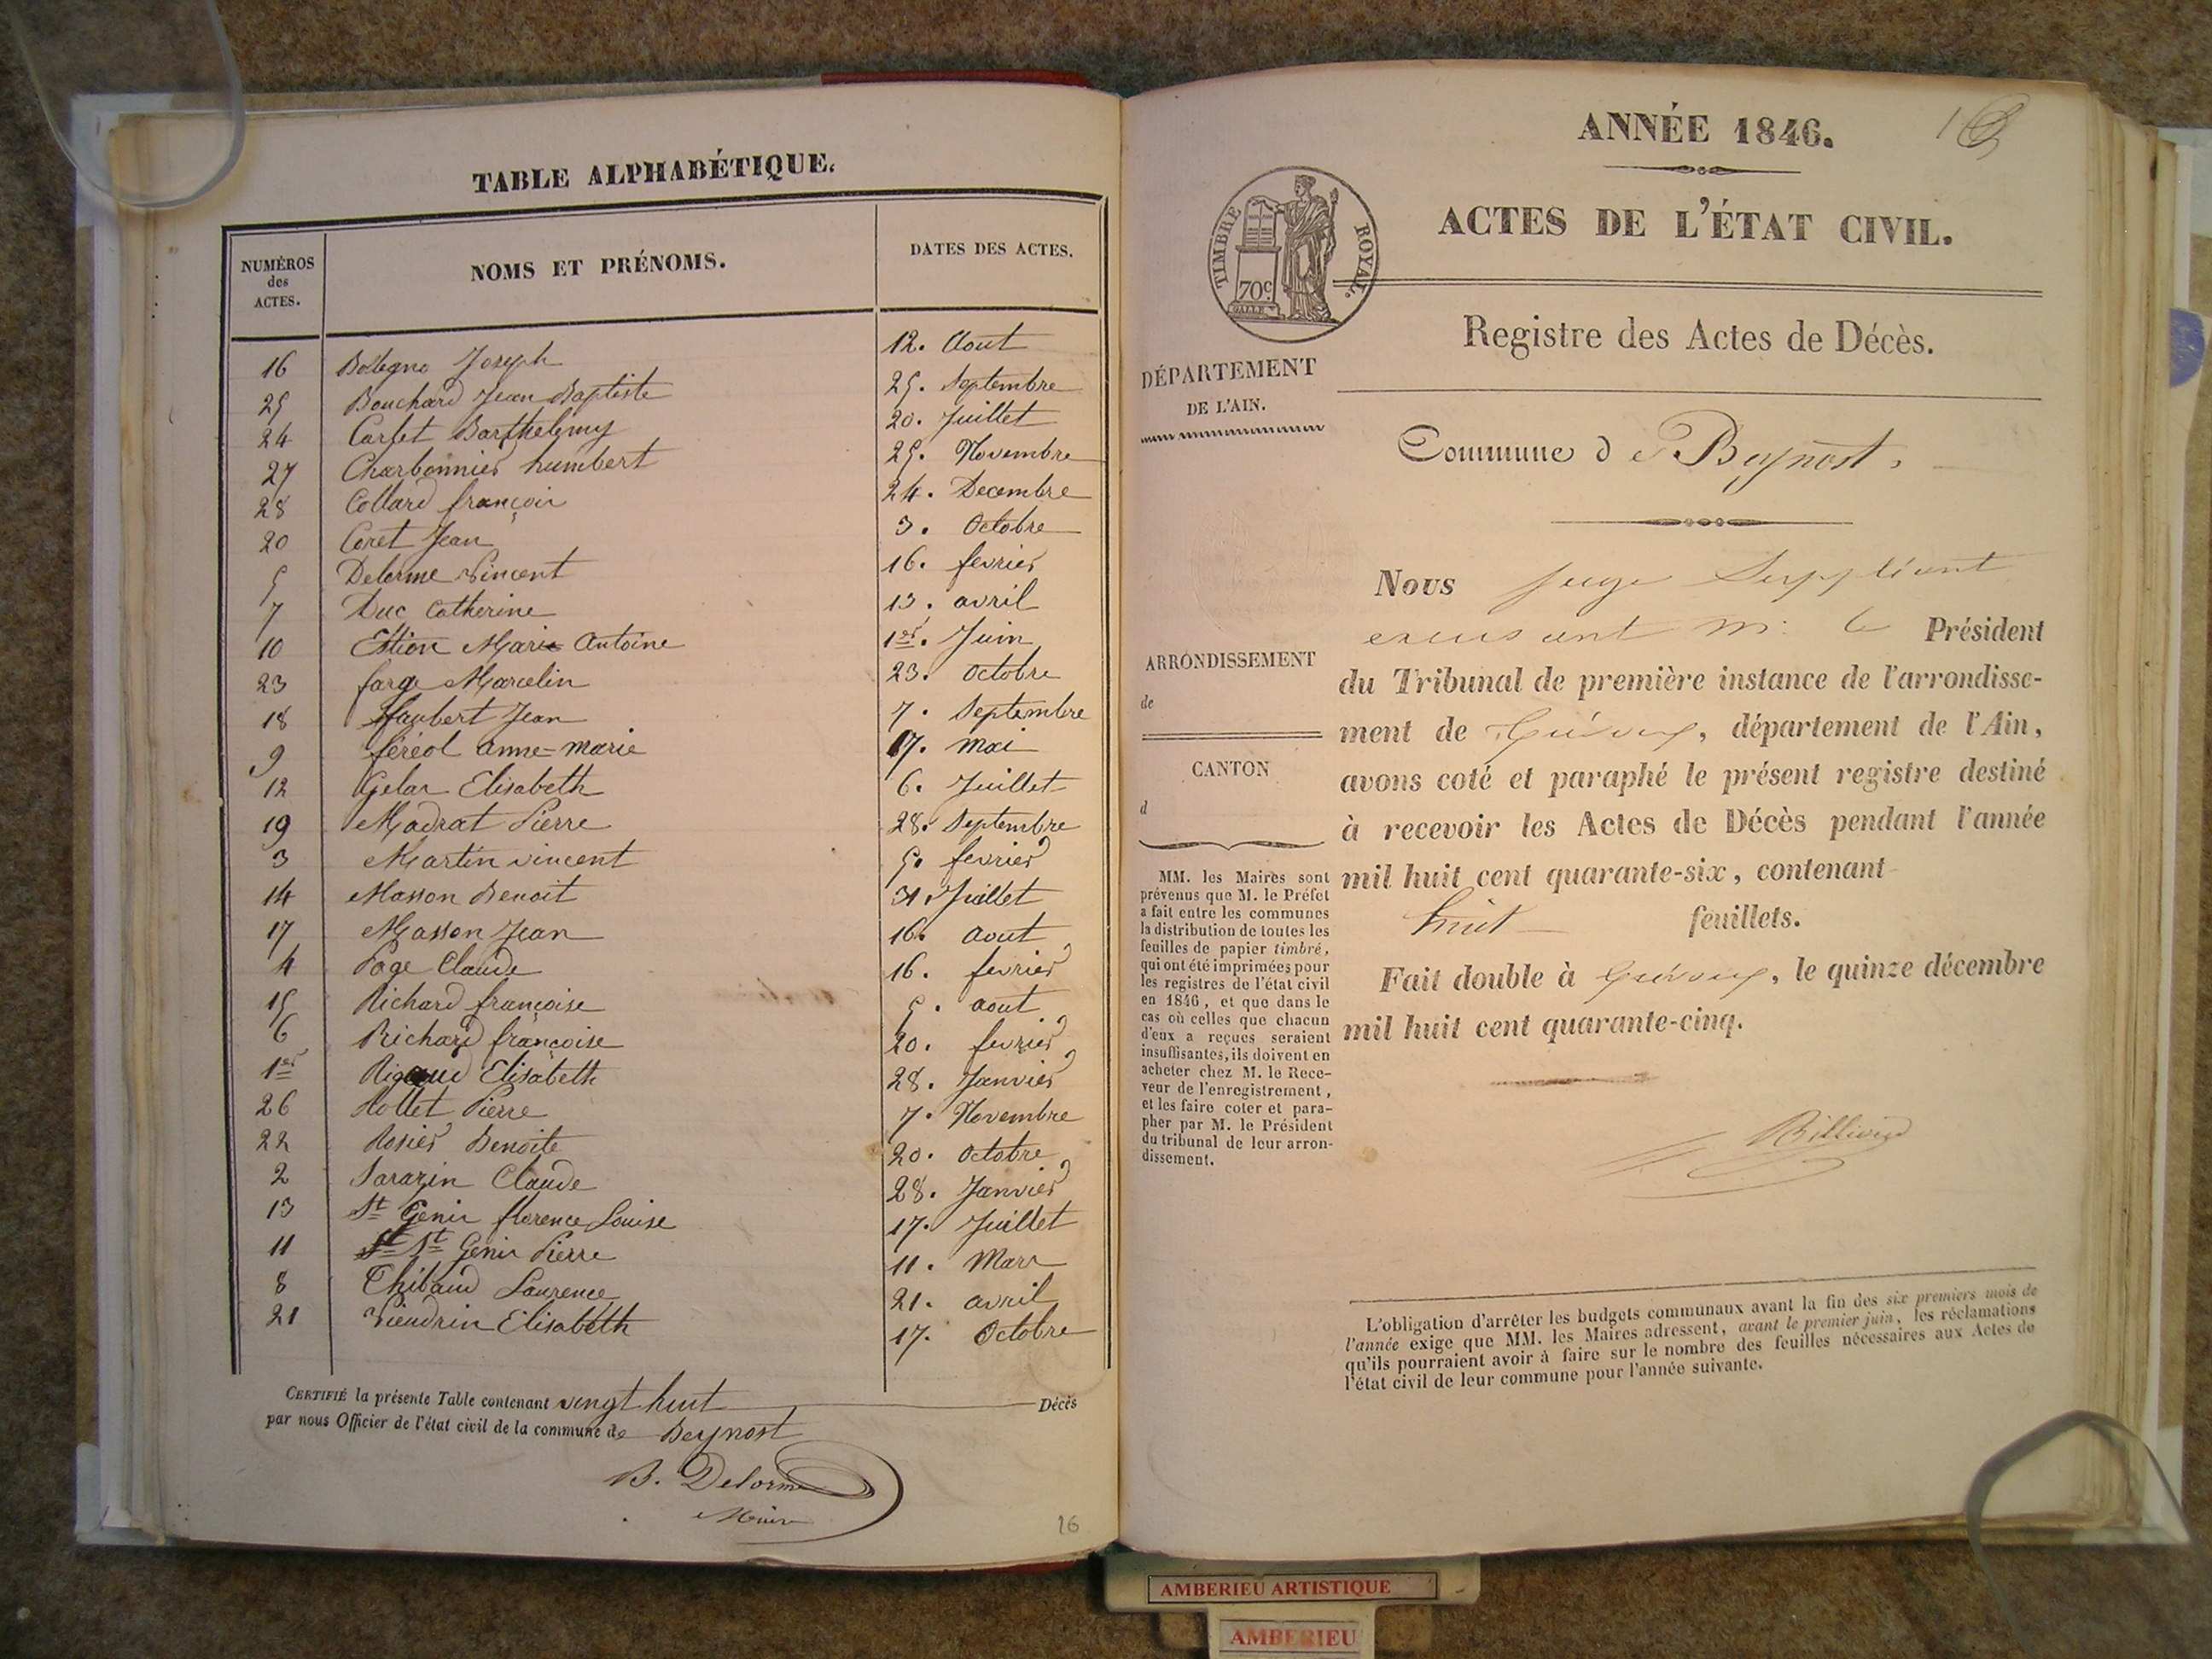 TABLE ALPHABÉTIQUE.
NUMÉROS des ACTES. NOMS ET PRÉNOMS. DATES DES ACTES.
16 Joseph 12. Aout
25 Bouchard Jean Baptiste 25. Septembre
24 Carlet Barthelemy 20. Juillet
27 Charbonnier humbert 25. Novembre
28 Collard françois 24. Decembre
20 Coret Jean 3. Octobre
5 Delorme Vincent 16. fevrier
7 Duc Catherine 13. avril
10 Marie Antoine 1er. Juin
23 farge Marcelin 23. octobre
18 Jean 7. Septembre
9 féréol anne=marie 17. mai
12 Gelas Elisabeth 6. Juillet
19 Madrat Pierre 28. Septembre
3 Martin vincent 5. fevrier
14 Masson Benoit 31. Juillet
17 Masson Jean 16. aout
4 Page Claude 16. fevrier
15 Richard françoise 5. aout
6 Richard françoise 20. fevrier
1er Elisabeth 28. Janvier
26 Rollet Pierre 7. Novembre
22 Rosier Benoite 20. Octobre
2 Sarazin Claude 28. Janvier
13 St Genis florence Louise 17. Juillet
11 St Genis Pierre 11. Mars
8 Thibaud Laurence 21. avril
21 Elisabeth 17. Octobre
CERTIFIÉ la présente Table contenant vingt huit Décès
par nous Officier de l'état civil de la commune de Beynost
B. Delorme
Maire
26
ANNÉE 1846.
ACTES DE L'ÉTAT CIVIL.
TIMBRE ROYAL.
70c.
Registre des Actes de Décès.
DÉPARTEMENT
DE L'AIN.
Commune de Beynost.
ARRONDISSEMENT
de
CANTON
d
MM. les Maires sont
prévenus que M. le Préfet
a fait entre les communes
la distribution de toutes les
feuilles de papier timbré,
qui ont été imprimées pour
les registres de l'état civil
en 1846, et que dans le
cas où celles que chacun
d'eux a reçues seraient
insuffisantes, ils doivent en
acheter chez M. le Rece-
veur de l'enregistrement,
et les faire coter et para-
pher par M. le Président
du tribunal de leur arron-
dissement.
Nous juge Suppléant
m. le Président
du Tribunal de première instance de l'arrondisse-
ment de Trévoux, département de l'Ain,
avons coté et paraphé le présent registre destiné
à recevoir les Actes de Décès pendant l'année
mil huit cent quarante-six, contenant
huit feuillets.
Fait double à Trévoux, le quinze décembre
mil huit cent quarante-cinq.
L'obligation d'arrêter les budgets communaux avant la fin des six premiers mois de
l'année exige que MM. les Maires adressent, avant le premier juin, les réclamations
qu'ils pourraient avoir à faire sur le nombre des feuilles nécessaires aux Actes de
l'état civil de leur commune pour l'année suivante.
AMBERIEU ARTISTIQUE
AMBERIEU